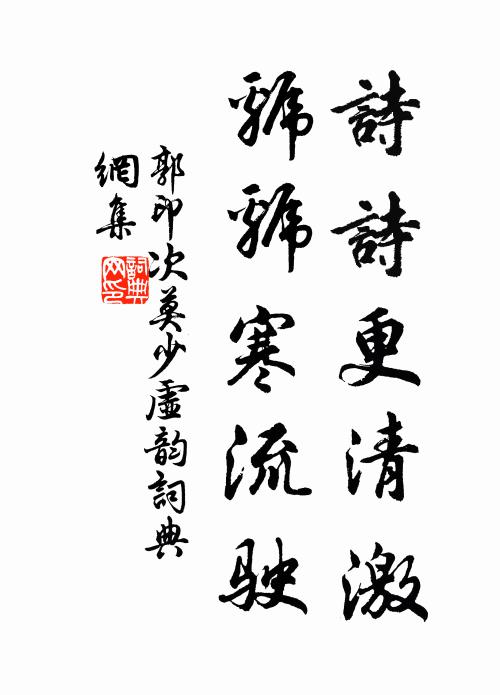 詩詩更清激
虩虩寒流駛
郭印次莫少虛韵詞典
網集
詞典網印